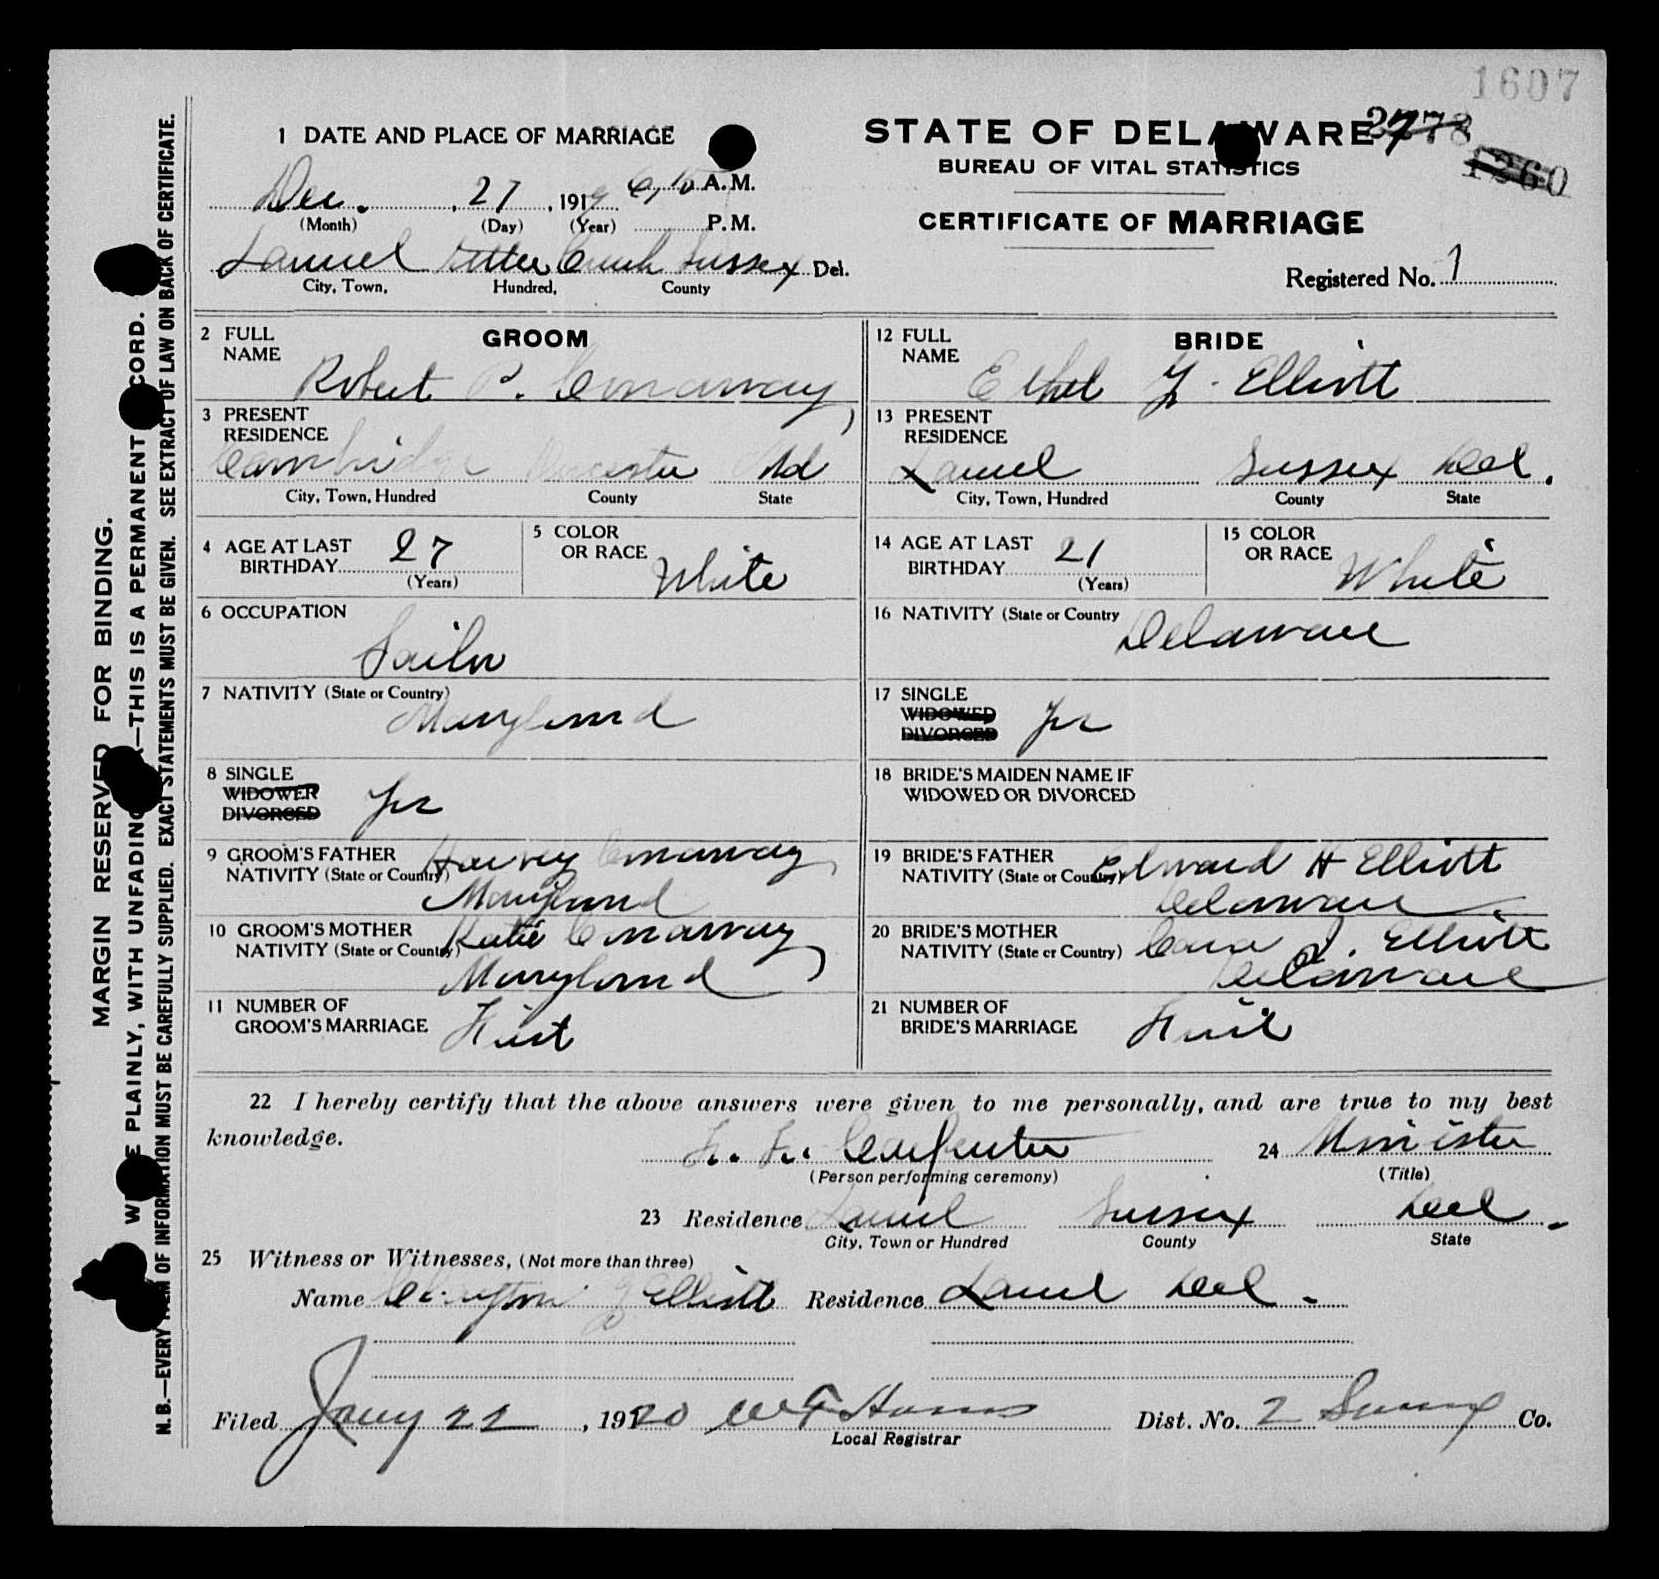 1607
2778
1260
1 DATE AND PLACE OF MARRIAGE
Dec. 27, 1919 6,15 A.M.
(Month) (Day) (Year) P.M.
Laurel Little Creek Sussex Del.
City, Town, Hundred, County
STATE OF DELAWARE
BUREAU OF VITAL STATISTICS
CERTIFICATE OF MARRIAGE
Registered No. 1
MARGIN RESERVED FOR BINDING.
PLAINLY, WITH UNFADING —THIS IS A PERMANENT CORD.
N.B.—EVERY ITEM OF INFORMATION MUST BE CAREFULLY SUPPLIED. EXACT STATEMENTS MUST BE GIVEN. SEE EXTRACT OF LAW ON BACK OF CERTIFICATE.
GROOM
2 FULL NAME Robert P. Conaway
3 PRESENT RESIDENCE
Cambridge Md
City, Town, Hundred County State
4 AGE AT LAST BIRTHDAY 27
(Years)
5 COLOR OR RACE White
6 OCCUPATION
Sailor
7 NATIVITY (State or Country)
Maryland
8 SINGLE
WIDOWER
DIVORCED
Yes
9 GROOM'S FATHER Harvey Conaway,
NATIVITY (State or Country) Maryland
10 GROOM'S MOTHER Katie Conaway,
NATIVITY (State or Country) Maryland
11 NUMBER OF GROOM'S MARRIAGE First
BRIDE
12 FULL NAME Ethel Y. Elliott
13 PRESENT RESIDENCE
Laurel Sussex Del.
City, Town, Hundred County State
14 AGE AT LAST BIRTHDAY 21
(Years)
15 COLOR OR RACE White
16 NATIVITY (State or Country
Delaware
17 SINGLE
WIDOWED
DIVORCED
Yes
18 BRIDE'S MAIDEN NAME IF WIDOWED OR DIVORCED
19 BRIDE'S FATHER Edward H Elliott
NATIVITY (State or Country) Delaware
20 BRIDE'S MOTHER Cora J. Elliott
NATIVITY (State or Country) Delaware
21 NUMBER OF BRIDE'S MARRIAGE First
22 I hereby certify that the above answers were given to me personally, and are true to my best
knowledge.
F. F. Carpenter 24 Minister
(Person performing ceremony) (Title)
23 Residence Laurel Sussex Del.
City, Town or Hundred County State
25 Witness or Witnesses, (Not more than three)
Name Clayton Elliott Residence Laurel Del.
Filed Jany 22, 1920 Dist. No. 2 Sussex Co.
Local Registrar